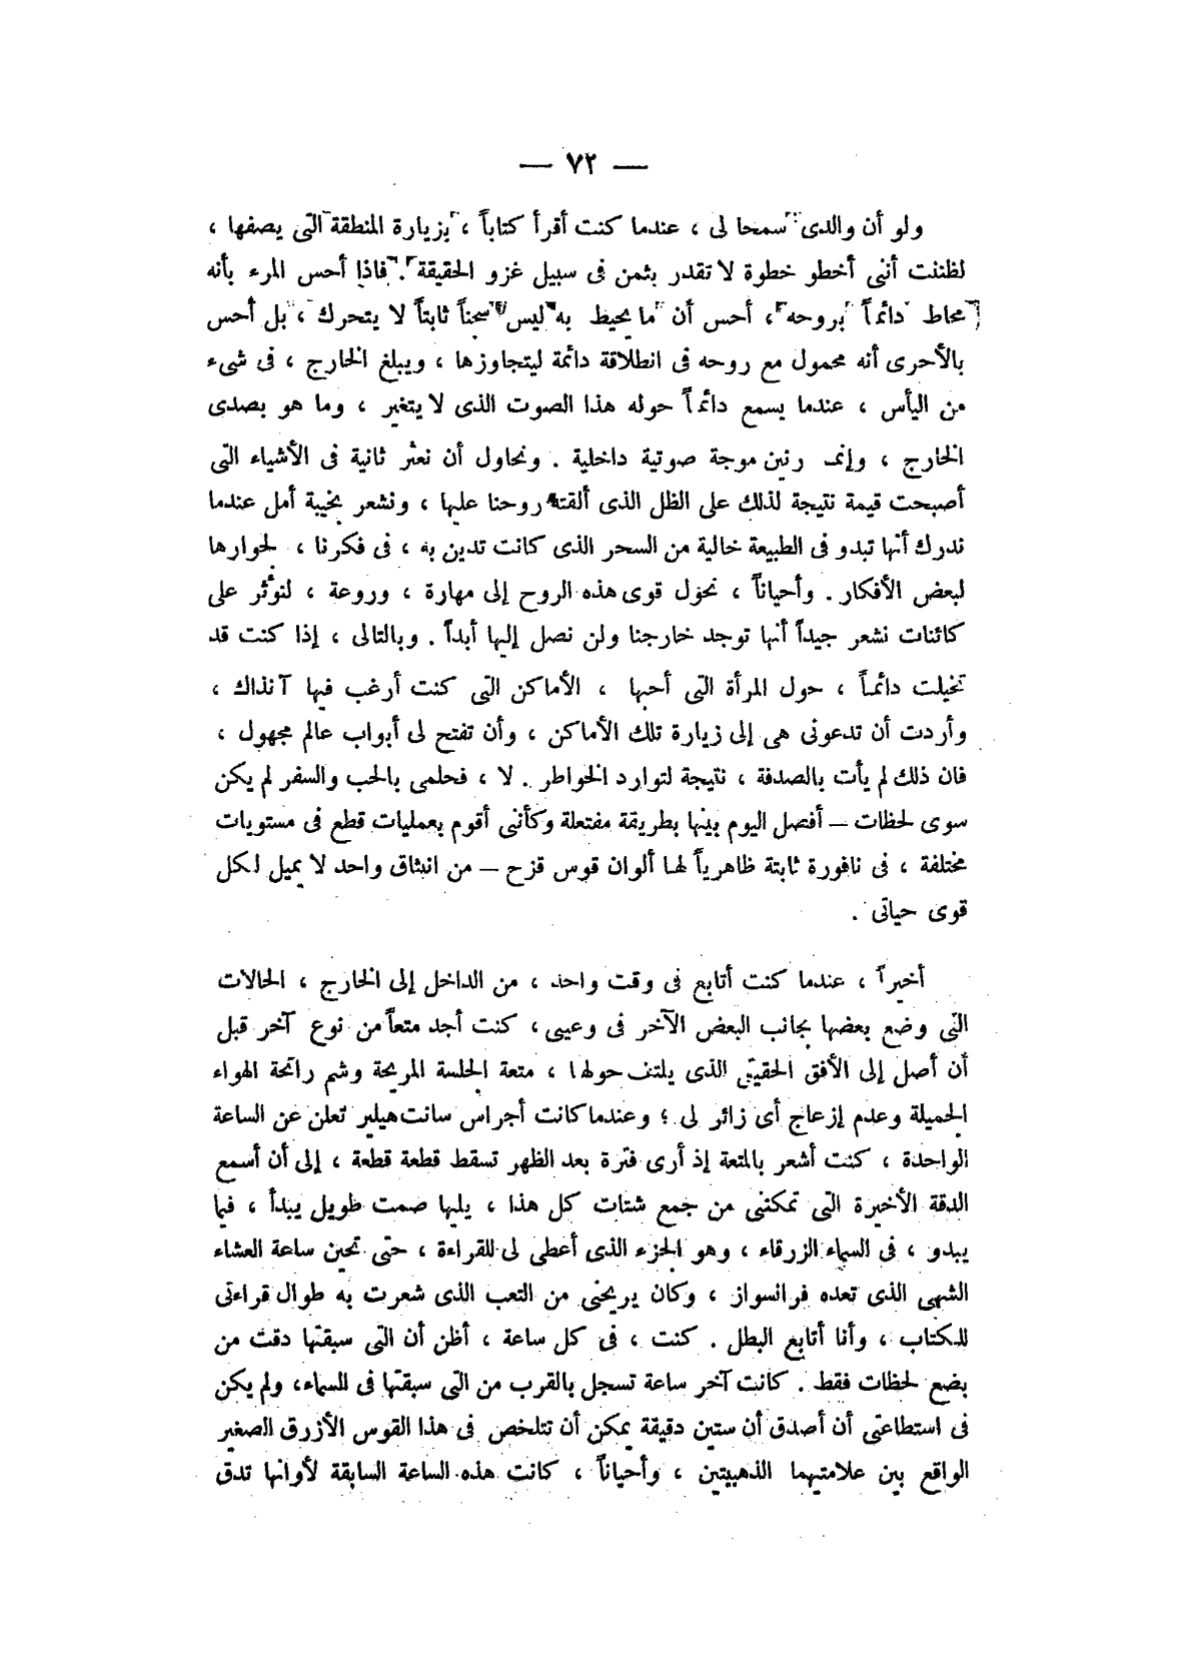 — ٧٢ —
ولو أن والدى سمحا لى ، عندما كنت أقرأ كتاباً ، بزيارة المنطقة التى يصفها ،
لظننت أننى أخطو خطوة لا تقدر بثمن فى سبيل غزو الحقيقة . فاذا أحس المرء بأنه
محاط دائماً بروحه ، أحس أن ما يحيط به ليس سجناً ثابتاً لا يتحرك ، بل أحس
بالأحرى أنه محمول مع روحه فى انطلاقة دائمة ليتجاوزها ، ويبلغ الخارج ، فى شىء
من اليأس ، عندما يسمع دائماً حوله هذا الصوت الذى لا يتغير ، وما هو بصدى
الخارج ، وإنما رنين موجة صوتية داخلية . ونحاول أن نعثر ثانية فى الأشياء التى
أصبحت قيمة نتيجة لذلك على الظل الذى ألقته روحنا عليها ، ونشعر بخيبة أمل عندما
ندرك أنها تبدو فى الطبيعة خالية من السحر الذى كانت تدين به ، فى فكرنا ، لجوارها
لبعض الأفكار . وأحياناً ، نحول قوى هذه الروح إلى مهارة ، وروعة ، لنؤثر على
كائنات نشعر جيداً أنها توجد خارجنا ولن نصل إليها أبداً . وبالتالى ، إذا كنت قد
تخيلت دائماً ، حول المرأة التى أحبها ، الأماكن التى كنت أرغب فيها آنذاك ،
وأردت أن تدعونى هى إلى زيارة تلك الأماكن ، وأن تفتح لى أبواب عالم مجهول ،
فان ذلك لم يأت بالصدفة ، نتيجة لتوارد الخواطر . لا ، فحلمى بالحب والسفر لم يكن
سوى لحظات — أفصل اليوم بينها بطريقة مفتعلة وكأننى أقوم بعمليات قطع فى مستويات
مختلفة ، فى نافورة ثابتة ظاهرياً لها ألوان قوس قزح — من انبثاق واحد لا يميل لكل
قوى حياتى .
أخيراً ، عندما كنت أتابع فى وقت واحد ، من الداخل إلى الخارج ، الحالات
التى وضع بعضها بجانب البعض الآخر فى وعيى ، كنت أجد متعاً من نوع آخر قبل
أن أصل إلى الأفق الحقيقى الذى يلتف حولها ، متعة الجلسة المريحة وشم رائحة الهواء
الجميلة وعدم إزعاج أى زائر لى ؛ وعندما كانت أجراس سانت هيلير تعلن عن الساعة
الواحدة ، كنت أشعر بالمتعة إذ أرى فترة بعد الظهر تسقط قطعة قطعة ، إلى أن أسمع
الدقة الأخيرة التى تمكننى من جمع شتات كل هذا ، يليها صمت طويل يبدأ ، فيما
يبدو ، فى السماء الزرقاء ، وهو الجزء الذى أعطى لى للقراءة ، حتى تحين ساعة العشاء
الشهى الذى تعده فرانسواز ، وكان يريحنى من التعب الذى شعرت به طوال قراءتى
للكتاب ، وأنا أتابع البطل . كنت ، فى كل ساعة ، أظن أن التى سبقتها دقت من
بضع لحظات فقط . كانت آخر ساعة تسجل بالقرب من التى سبقتها فى السماء ، ولم يكن
فى استطاعتى أن أصدق أن ستين دقيقة يمكن أن تتلخص فى هذا القوس الأزرق الصغير
الواقع بين علامتيهما الذهبيتين ، وأحياناً ، كانت هذه الساعة السابقة لأوانها تدق